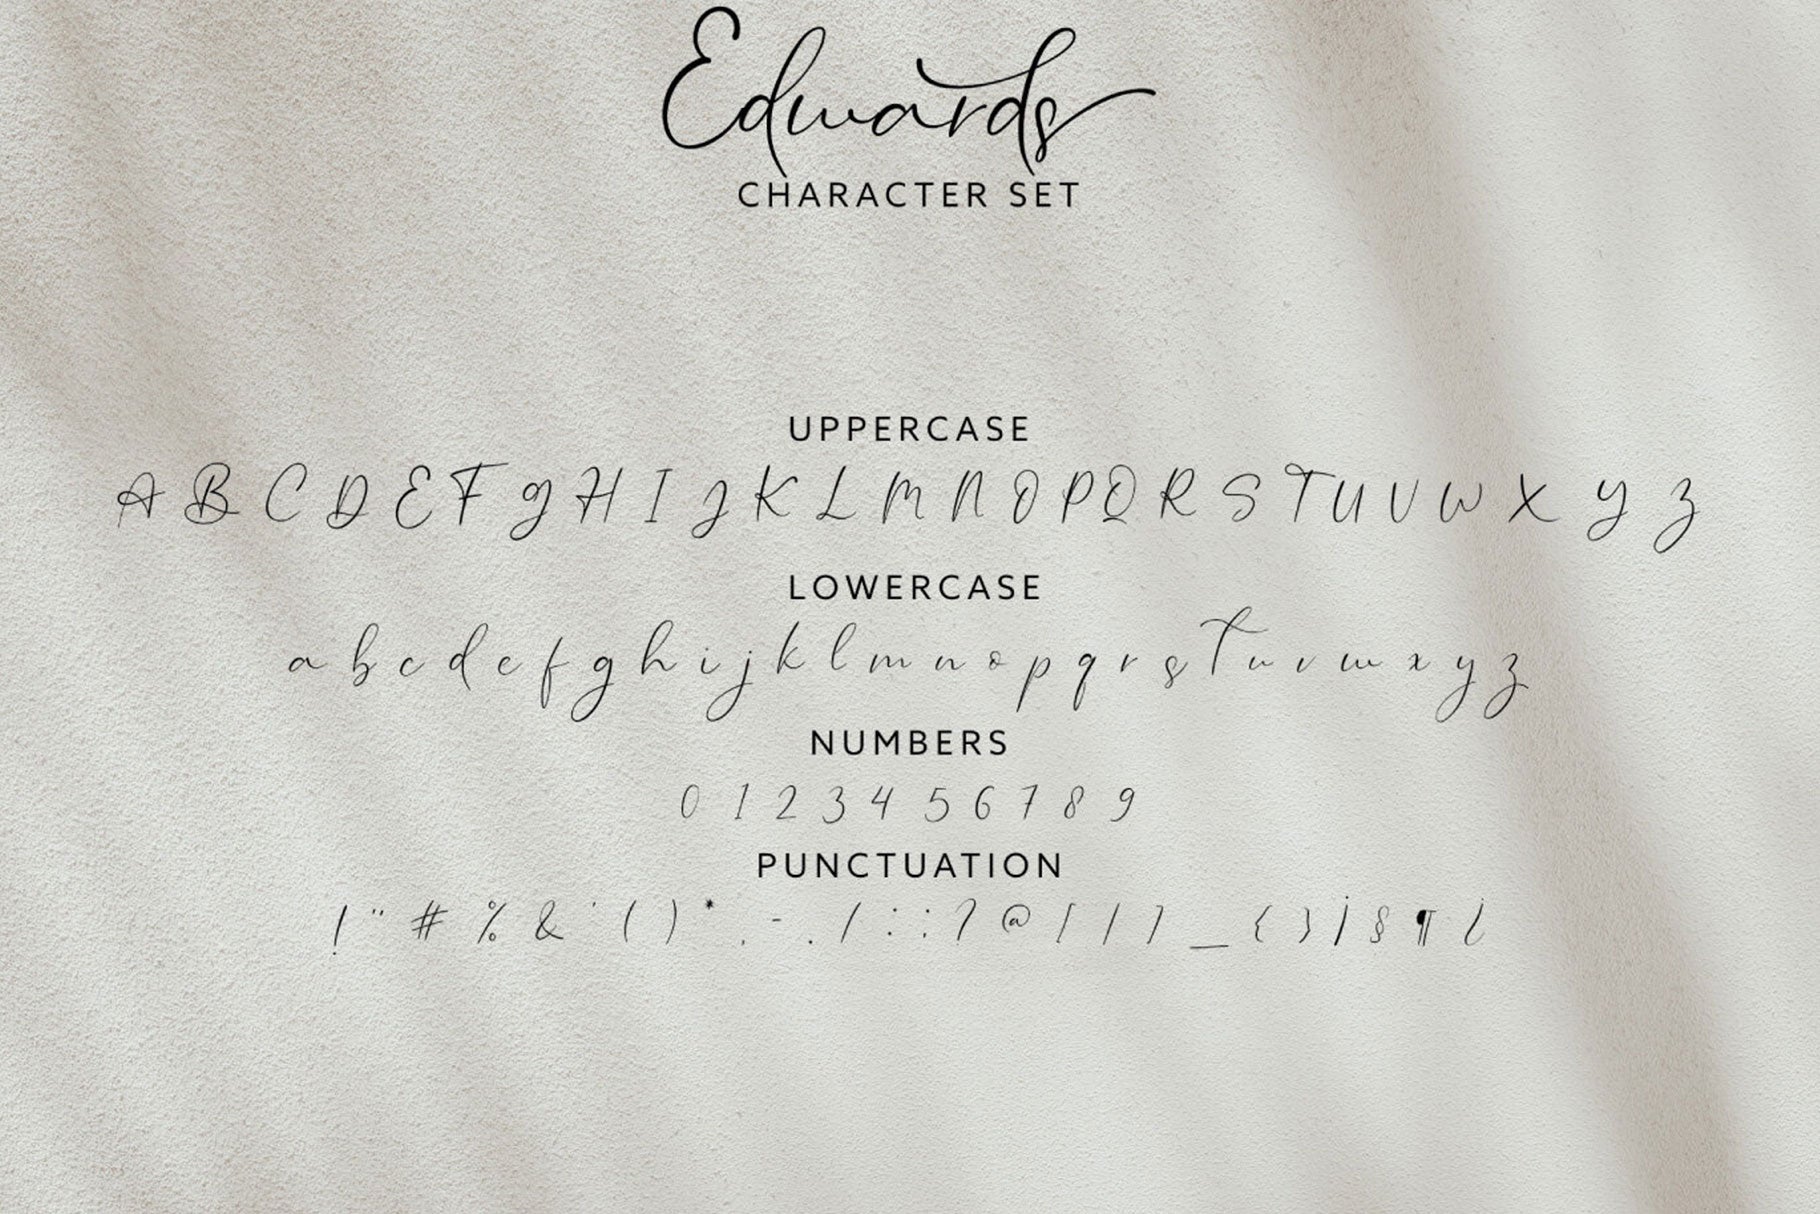 Edwards
CHARACTER SET
UPPERCASE
A B C D E F G H I J K L M N O P Q R S T U V W X Y Z
LOWERCASE
a b c d e f g h i j k l m n o p q r s t u v w x y z
NUMBERS
0 1 2 3 4 5 6 7 8 9
PUNCTUATION
! " # % & ' ( ) * , - . / : ; ? @ [ \ ] _ { } ¡ § ¶ ¿